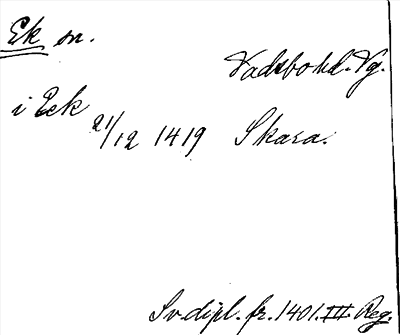 Ek sn.
Vadsbo hd. Vg.
i Eek
21/12 1419 Skara.
Sv. dipl. fr. 1401. III. Reg.